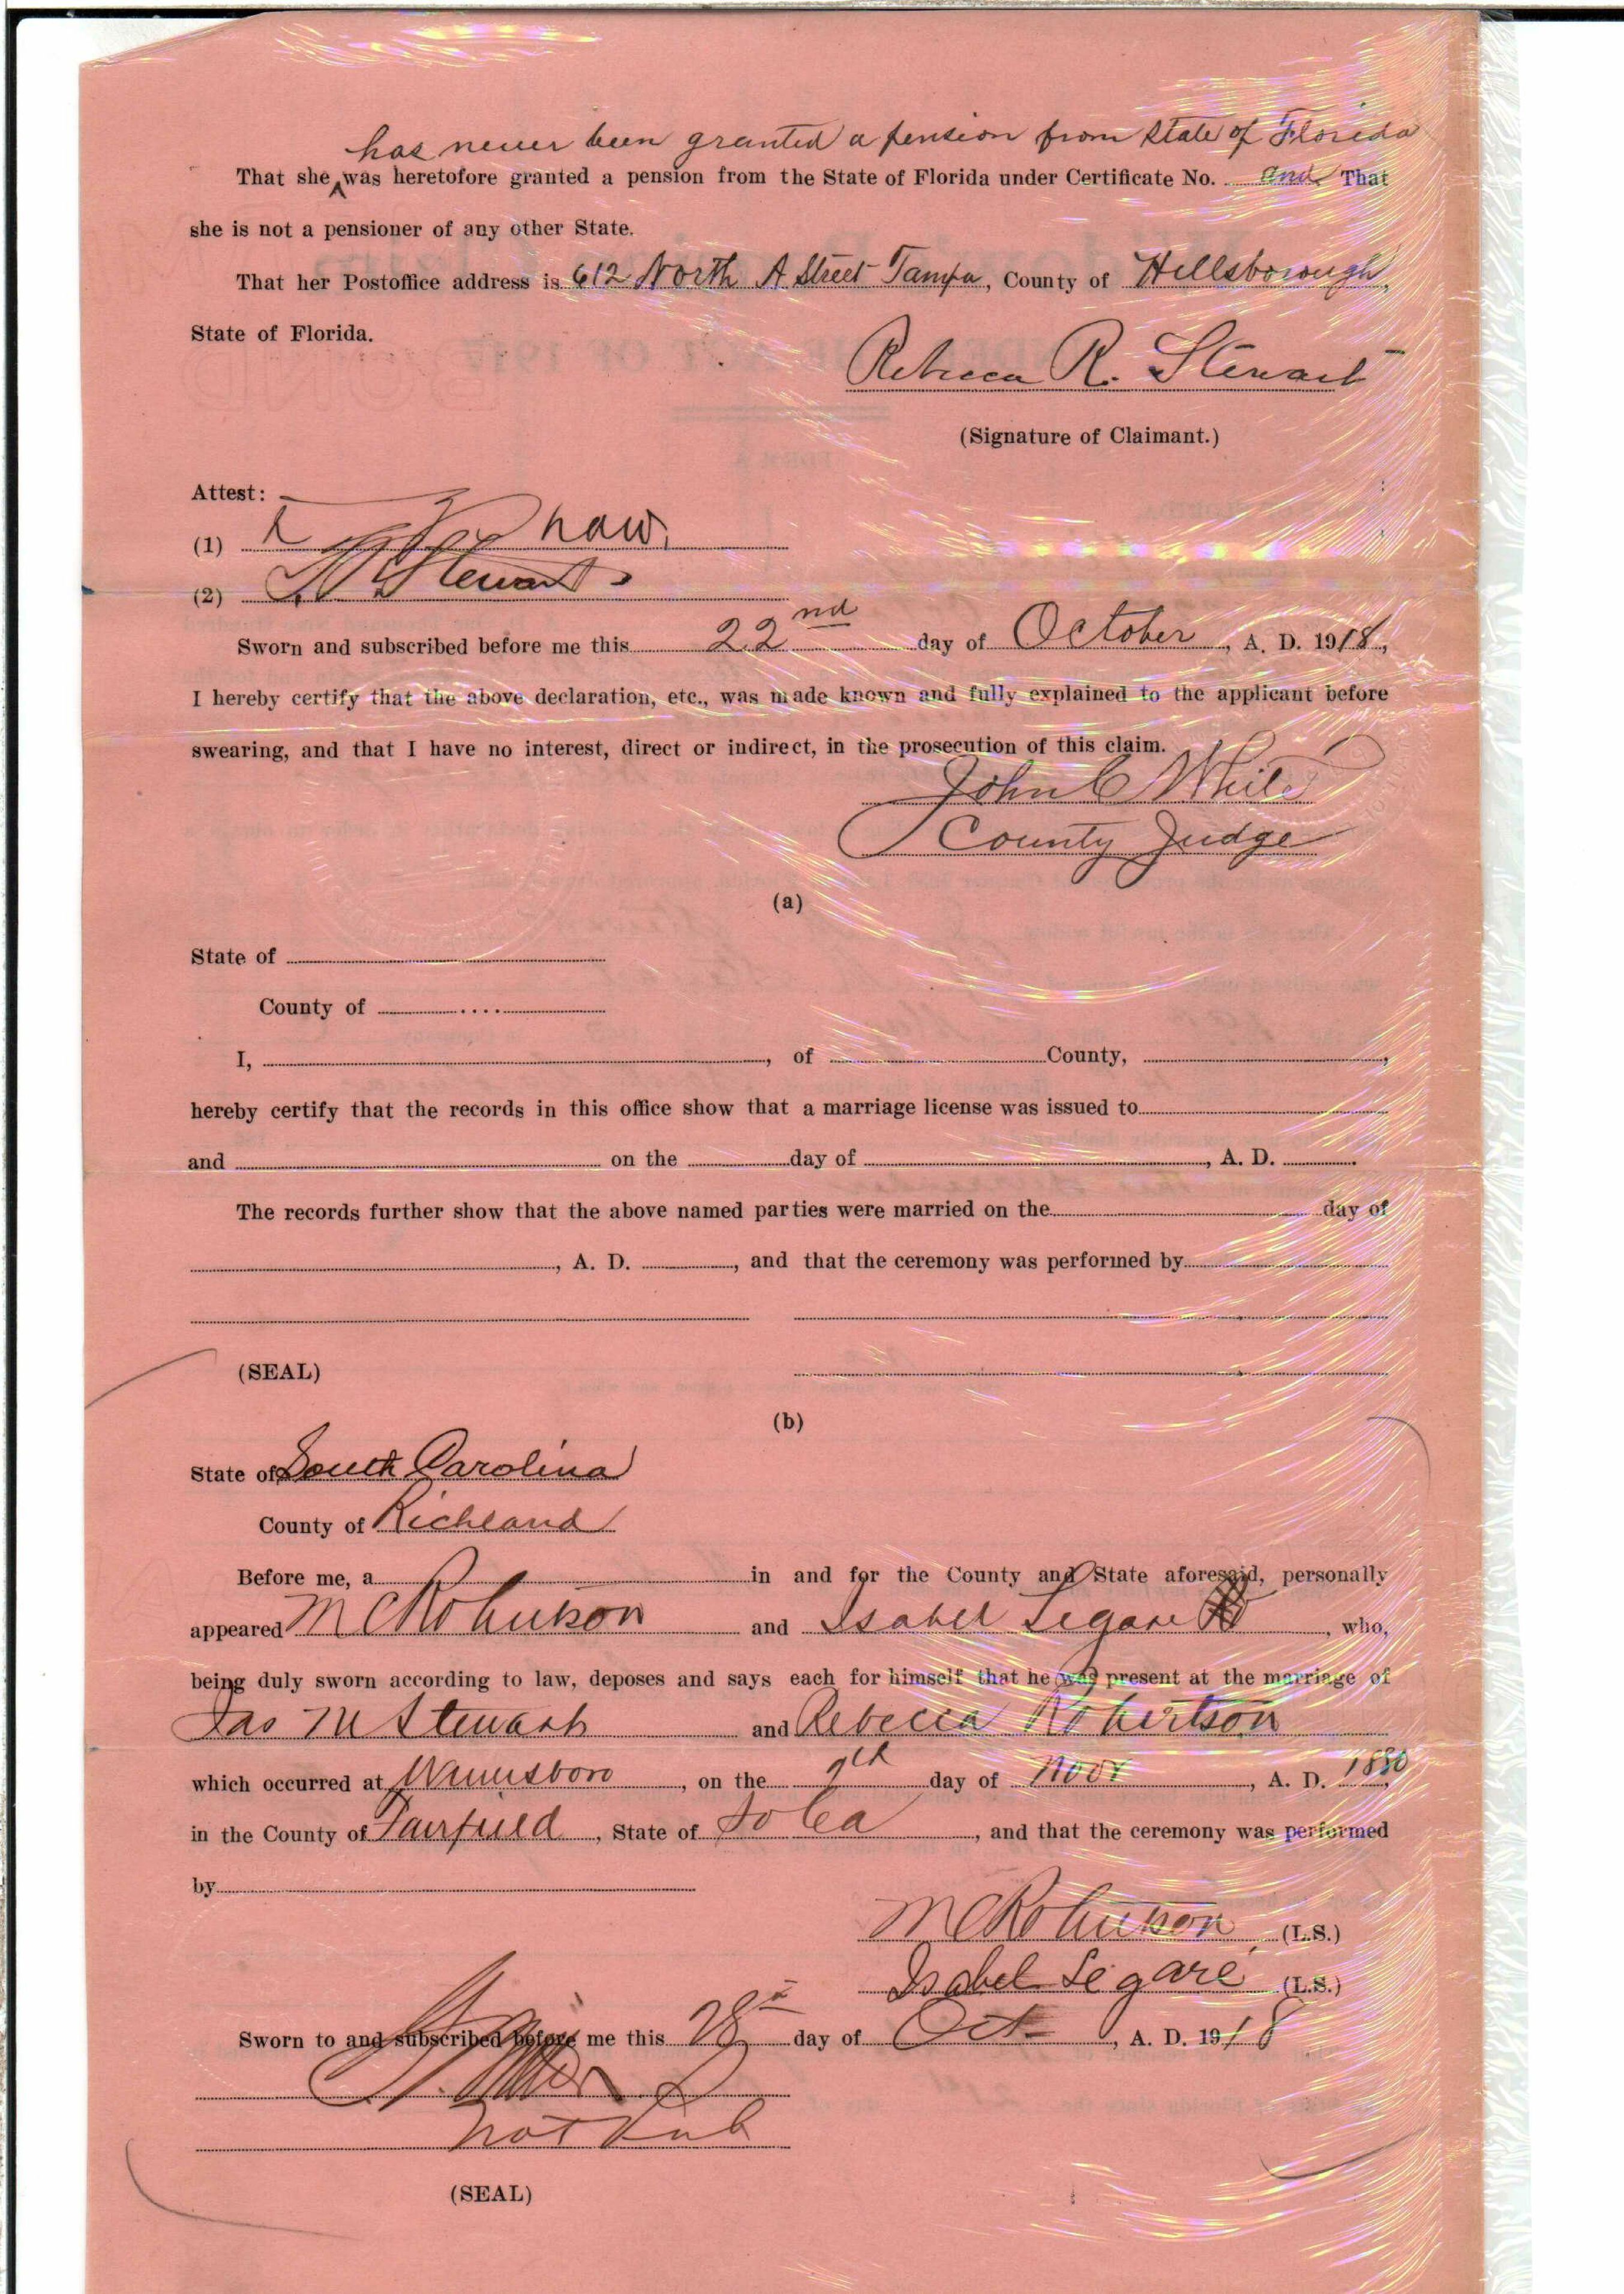 has never been granted a pension from State of Florida
That she ^ was heretofore granted a pension from the State of Florida under Certificate No. and That
she is not a pensioner of any other State.
That her Postoffice address is 612 North A Street Tampa, County of Hillsborough,
State of Florida.
Rebecca R. Stewart
(Signature of Claimant.)
Attest:
(1)
(2) Stewart
Sworn and subscribed before me this 22nd day of October, A. D. 1918,
I hereby certify that the above declaration, etc., was made known and fully explained to the applicant before
swearing, and that I have no interest, direct or indirect, in the prosecution of this claim.
John C White
County Judge
(a)
State of
County of
I, , of County, ,
hereby certify that the records in this office show that a marriage license was issued to
and on the day of , A. D. .
The records further show that the above named parties were married on the day of
, A. D. , and that the ceremony was performed by
(SEAL)
(b)
State of South Carolina
County of Richland
Before me, a in and for the County and State aforesaid, personally
appeared M C Robertson and Isabel Legare, who,
being duly sworn according to law, deposes and says each for himself that he was present at the marriage of
Jas M Stewart and Rebecca Robertson
which occurred at Winnsboro, on the 9th day of Novr, A. D. 1880,
in the County of Fairfield, State of So Ca, and that the ceremony was performed
by
M C Robertson (L.S.)
Isabel Legaré (L.S.)
Sworn to and subscribed before me this 28th day of Oct, A. D. 1918
Not Pub
(SEAL)